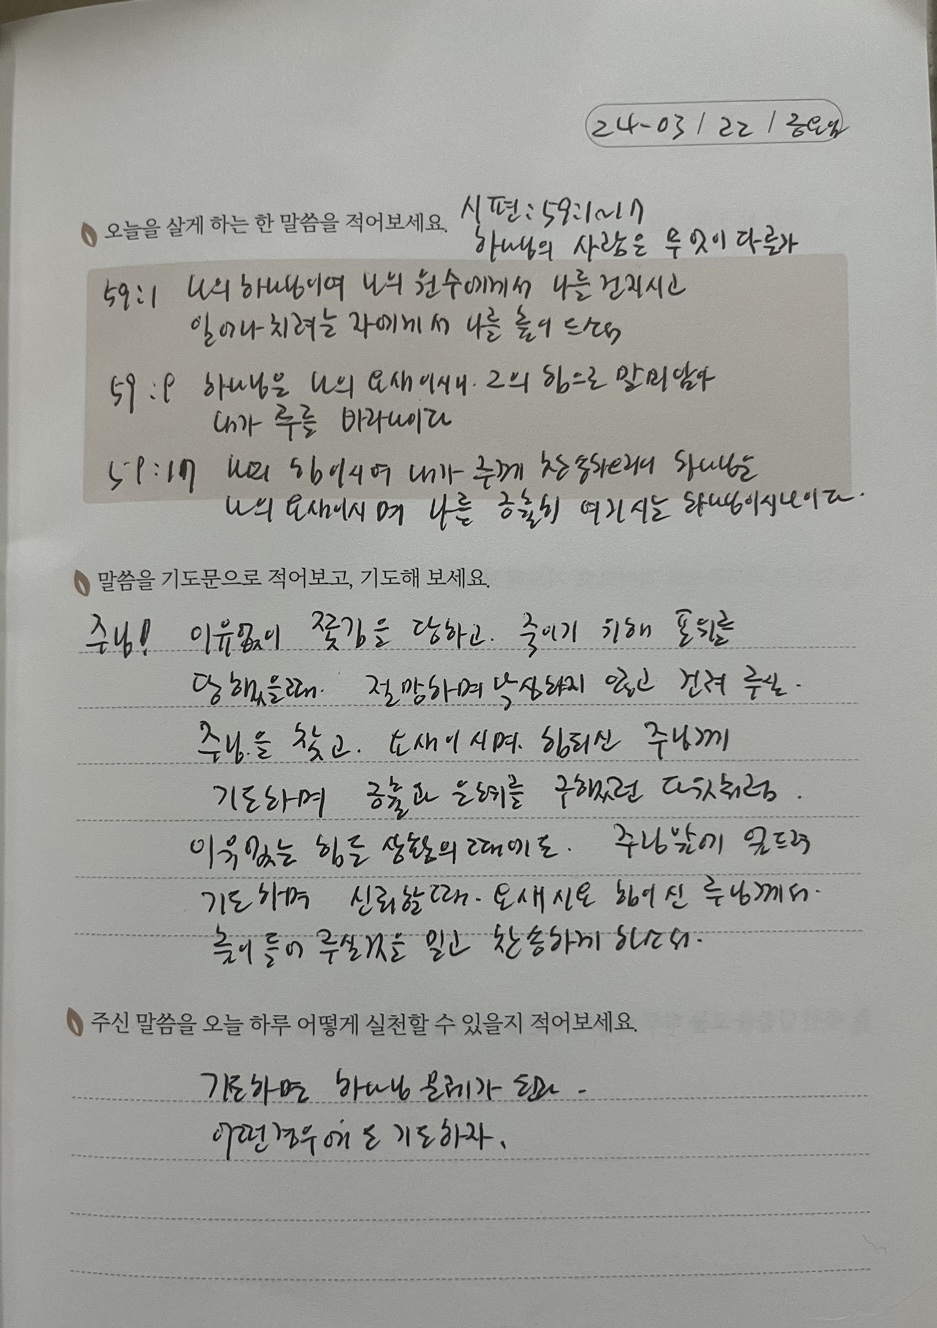 24-03 / 22 / 금요일
오늘을 살게 하는 한 말씀을 적어보세요.
시편:59:1~17
하나님의 사람은 무엇이 다른가
59:1 나의 하나님이여 나의 원수에게서 나를 건지시고
일어나 치려는 자에게서 나를 높이 드소서
59:9 하나님은 나의 요새이시니. 그의 힘으로 말미암아
내가 주를 바라나이다
59:17 나의 힘이시여 내가 주께 찬송하오리니 하나님은
나의 요새이시며 나를 긍휼히 여기시는 하나님이시니이다.
말씀을 기도문으로 적어보고, 기도해 보세요.
주님! 이유없이 쫓김을 당하고. 죽이기 위해 포위를
당했을때. 절망하며 낙심하지 않고 건져 주실.
주님을 찾고. 요새이시며. 힘되신 주님께
기도하며 긍휼과 은혜를 구했던 다윗처럼.
이유없는 힘든 상황의 때에도. 주님앞에 엎드려
기도하며 신뢰할때. 요새시요 힘이신 주님께서.
높이 들어 주실것을 믿고 찬송하게 하소서.
주신 말씀을 오늘 하루 어떻게 실천할 수 있을지 적어보세요.
기도하면 하나님 문제가 된다.
어떤경우에도 기도하자.